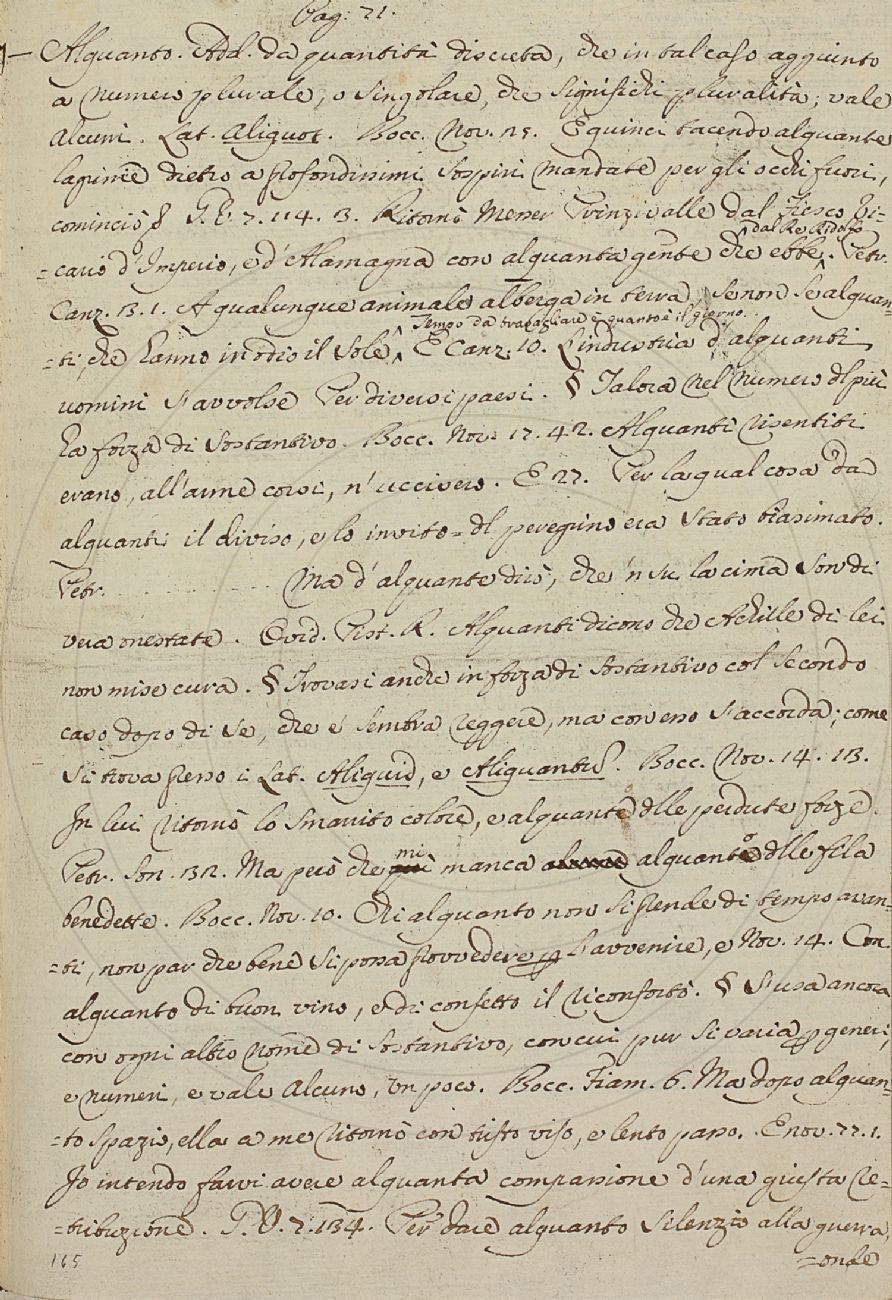 Pag: 21.
Alquanto. Add. da quantità discreta, che in tal caso aggiunto
a numero plurale, o singolare, che significhi pluralità; vale
Alcuni. Lat. Aliquot. Bocc. Nov. 15. E quinci tacendo alquante
lagrime dietro a profondissimi sospiri mandate per gli occhi fuori,
cominciò &c. G. V. 7. 114. 3. Ritornò Messer Prinzivalle dal Fiesco Vi-
dal Re Ridolfo
=cario d'Imperio, e d'Alamagna con alquanta gente che ebbe. Petr.
Canz. 3. 1. A qualunque animale alberga in terra, se non se alquan-
Tempo da travagliare è quanto è il giorno.
=ti che hanno in odio il Sole, E Canz. 10. L'industria d'alquanti
uomini s'avvolse Per diversi paesi. § Talora nel numero dl più
ha forza di sostantivo. Bocc. Nov. 17. 42. Alquanti risentiti
erano, all'arme corsi, n'uccisero. E 27. Per la qual cosa da
alquanti il diviso, e lo invito=dl peregrino era stato biasimato.
Petr. . . . . . . . . . . Ma d'alquante dirò, che 'n su la cima Son di
vera onestate. Ovid. Pist. R. Alquanti dicono che Achille di lei
non mise cura. § Trovasi anche in forza di sostantivo col secondo
caso dopo di se, che e' sembra reggere, ma con esso s'accorda; come
si trova presso i Lat. Aliquid, e Aliquantus. Bocc. Nov. 14. 13.
In lui ritornò lo smarrito colore, e alquante dlle perdute forze.
mi
Petr. Son. 132. Ma però che manca alquanto dlle fila
benedette. Bocc. Nov. 10. Chi alquanto non si prende di tempo avan-
=ti, non par che bene si possa provvedere p l'avvenire, e Nov. 14. Con
alquanto di buon vino, e di confetto il riconfortò. § S'usa ancora
con ogni altro nome di sostantivo, con cui pur si varia p generi,
e numeri, e vale Alcuno, Un poco. Bocc. Fiam. 6. Ma dopo alquan-
=to spazio, ella a me ritornò con tristo viso, e lento passo. E nov. 77. 1.
Io intendo farvi avere alquanta compassione d'una giusta re-
=tribuzione. G. V. 7. 134. Per dare alquanto silenzio alla guerra,
=onde
165